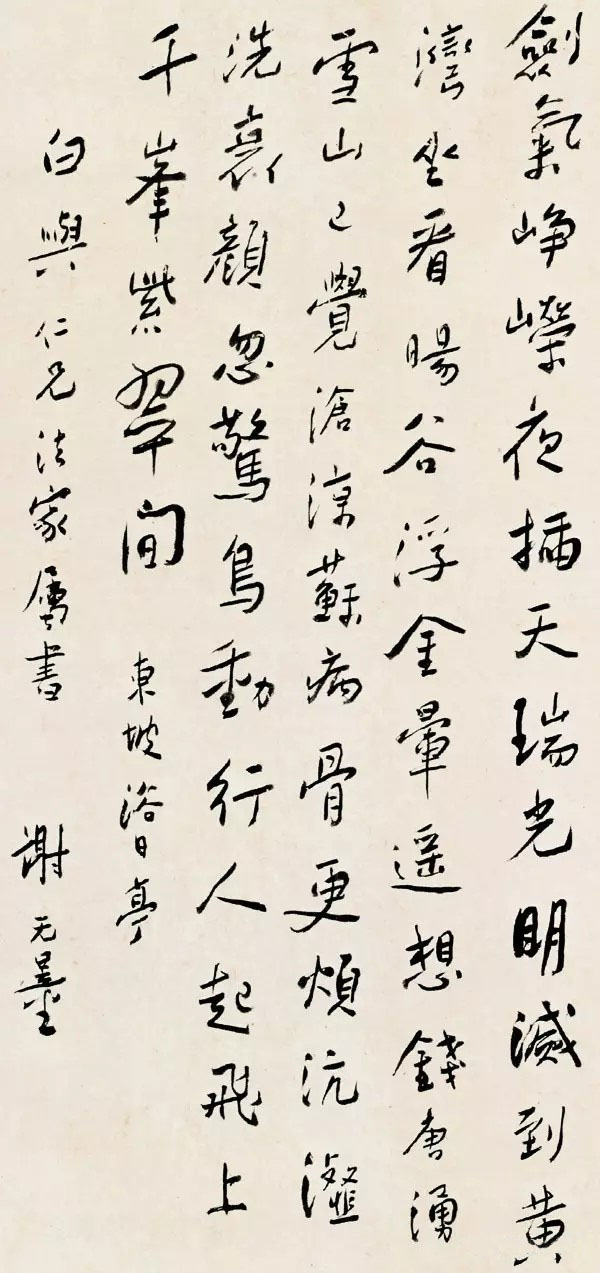 劍氣崢嶸夜插天瑞光明滅到黃
灣坐看暘谷浮金暈遥想錢唐湧
雪山已覺滄涼蘇病骨更煩沆瀣
洗衰顏忽驚鳥動行人起飛上
千峯紫翠間 東坡浴日亭
白與仁兄法家屬書
謝无量